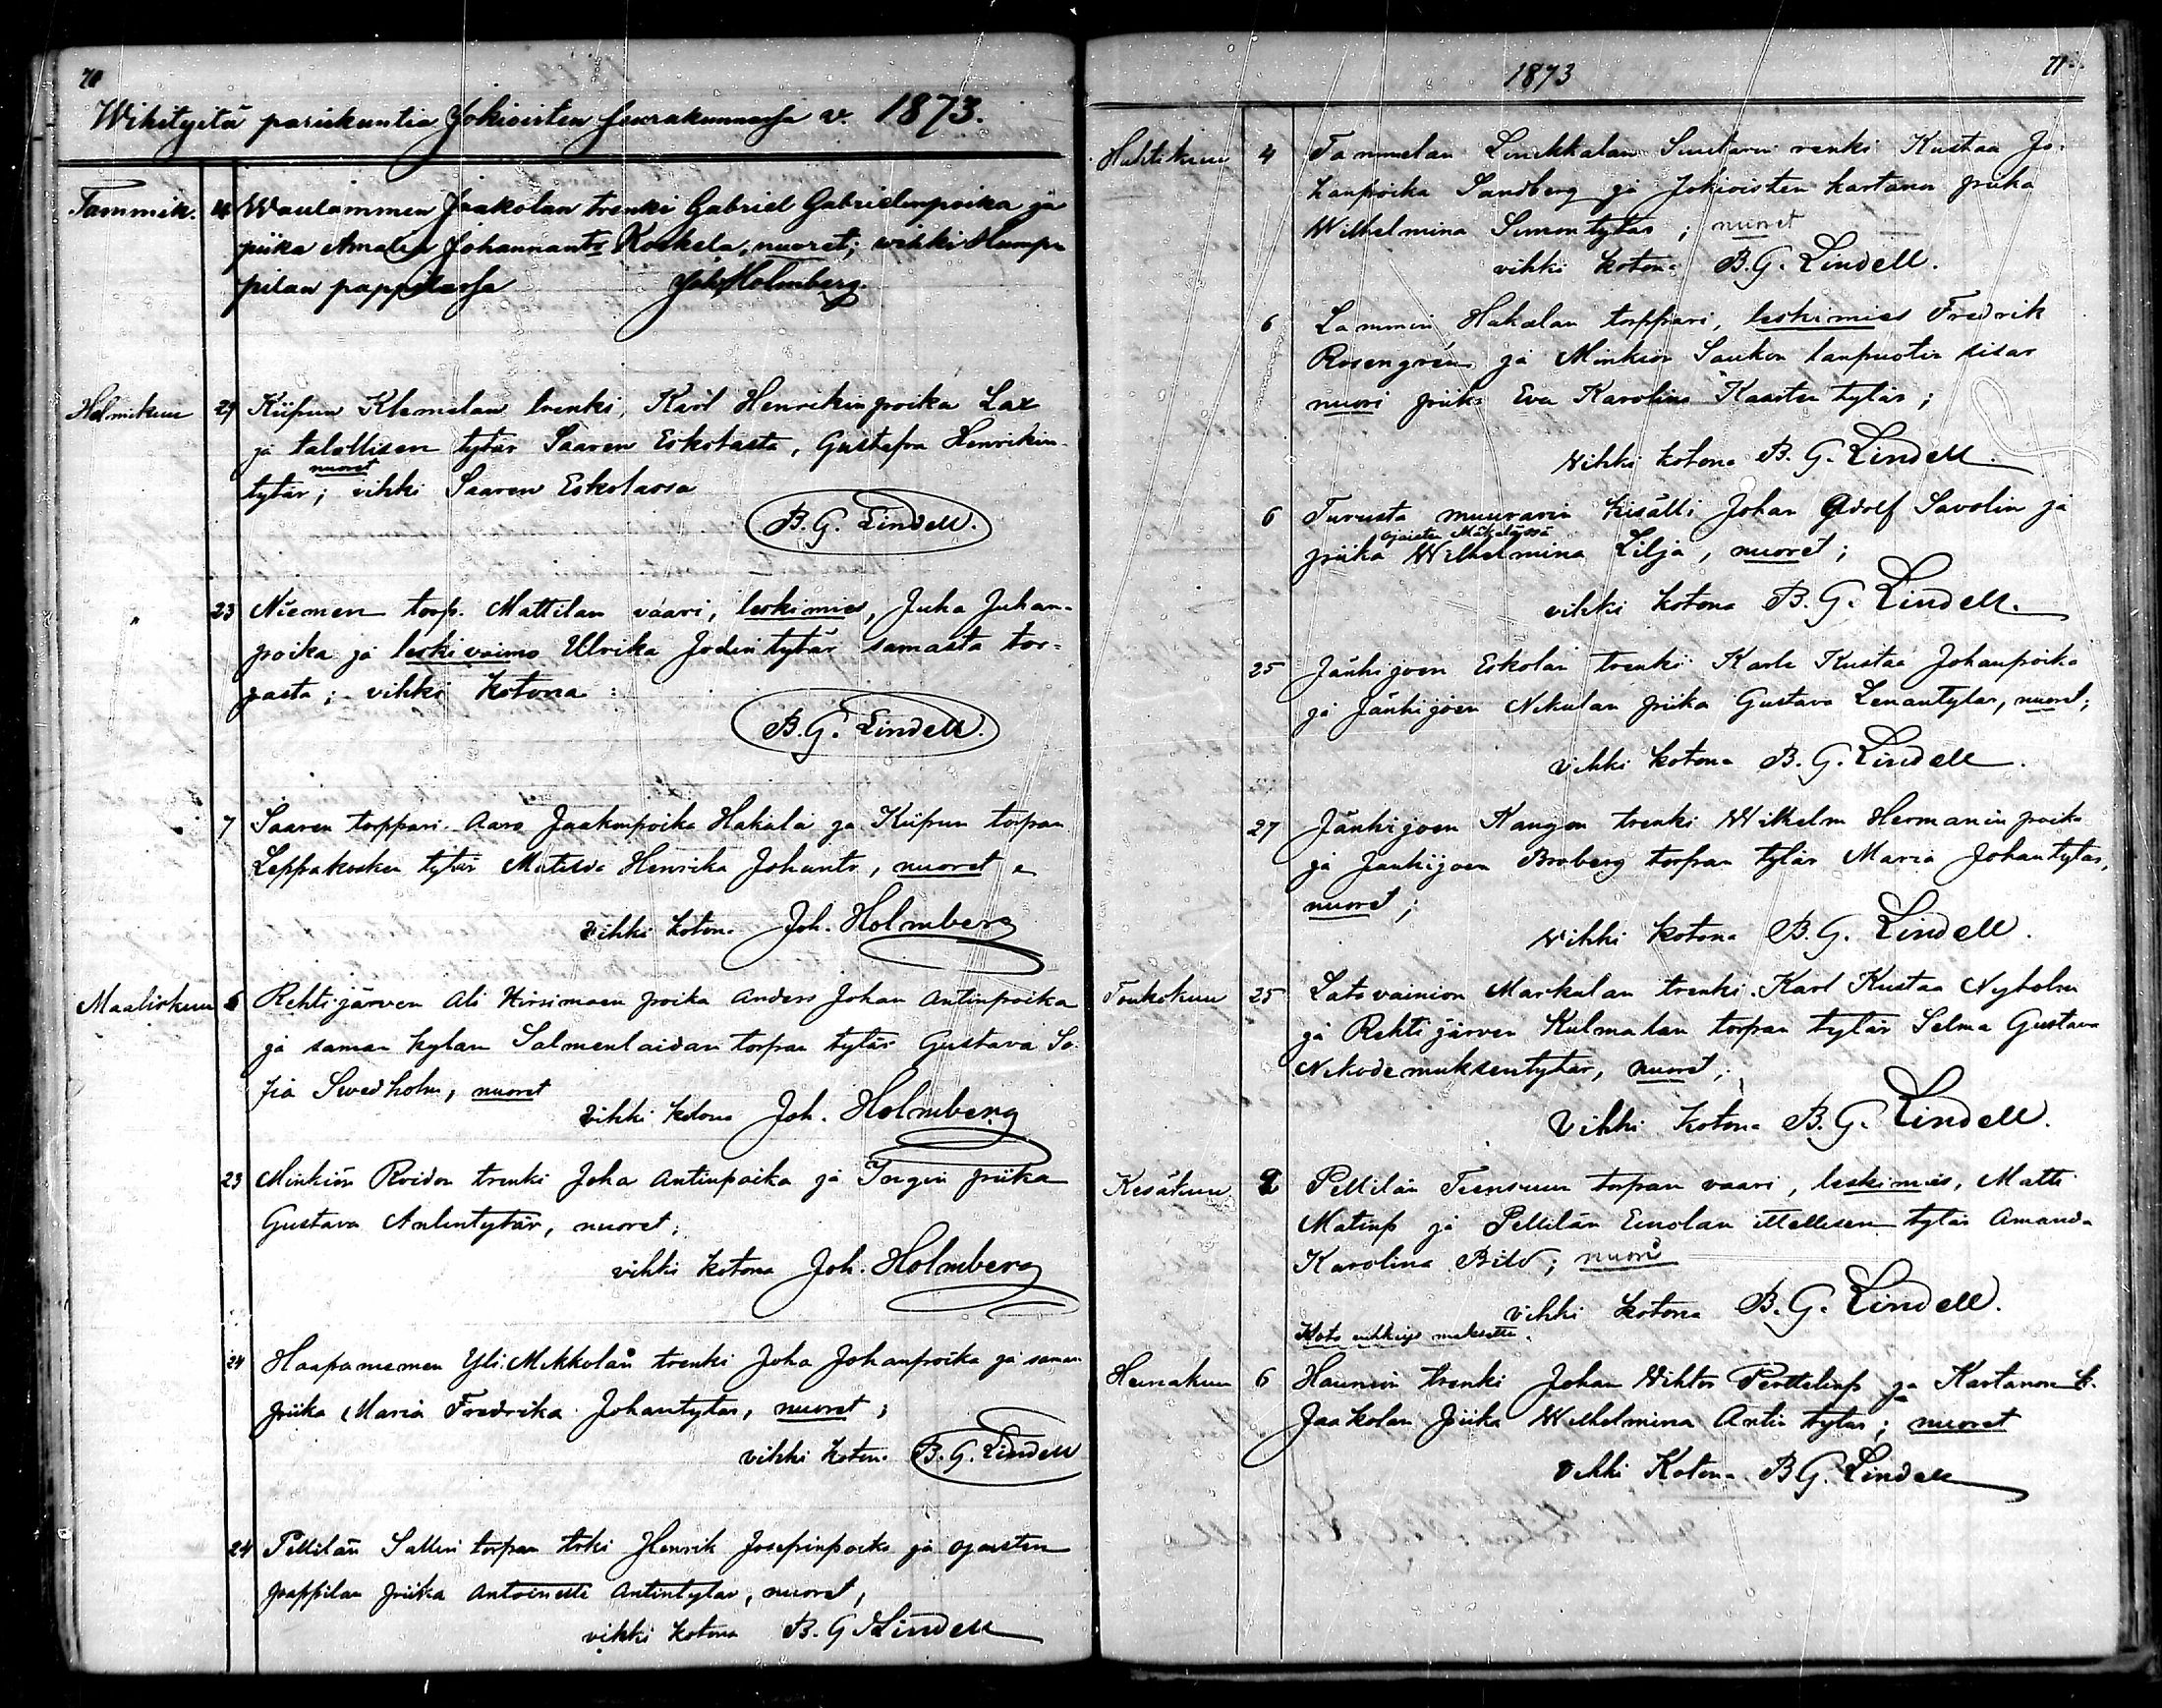 70
Wihityitä pariskuntia Jokioisten seurakunnassa v. 1873.
Tammik. 4 Waulammen Jaakolan trenki Gabriel Gabrielinpoika ja
piika Amalia Johannants Koskela, nuoret; vihki Humpa
pilan pappilassa Joh. Holmberg.
Helmikuu 29 Kiipun Klemelan trenki, Karl Henrikinpoika Lax
ja talollisen tytär Saaren Eskolasta, Gustafva Henrikin-
nuoret
tytär; vihki Saaren Eskolassa
B. G. Lindell.
23 Niemen torp. Mattilan vaari, leskimies, Juha Juhan-
poika ja leskivaimo Ulrika Jodintytär samasta tor-
pasta; vihki kotona
B. G. Lindell.
7 Saaren torppari Aaro Jaakonpoika Hakala ja Kiipun torpan
Leppakosken tytär Matilda Henrika Johants, nuoret
vihki kotona Joh. Holmberg
Maaliskuu 6 Rehtijärven Ali Hirsimaen poika Anders Johan Antinpoika
ja saman kylan Salmenlaidan torpan tytär Gustava So-
fia Swedholm, nuoret
vihki kotona Joh. Holmberg
23 Minkiön Roidon trenki Joha Antinpoika ja piika
Gustava Antintytär, nuoret;
vihki kotona Joh. Holmberg
24 Haapaniemen Yli Mikkolan trenki Joha Johanpoika ja saman
piika Maria Fredrika Johantytär, nuoret;
vihki kotona B. G. Lindell
24 Pellilän Salleri torpan trki Henrik Josefinpoika ja ojaisten
pappilan piika Antoinette Antintytär, nuoret,
vikki kotona B. G. Lindell
1873 71
Huhtikuu 4 Tammelan Linikkalan Suutarin renki Kustaa Jo-
hanpoika Sandberg ja Jokioisten kartanon piika
Wilhelmina Simontytär; nuoret
vihki kotona B. G. Lindell.
6 Lammin Hakalan torppari, leskimies Fredrik
Rosengrén ja Minkiön Saukon lanpuotin sisar
nuori piika Eva Karolina Kaarlen tytär;
vihki kotona B. G. Lindell.
6 Turusta muurarin kisälli Johan Adolf Savolin ja
ojaisten Mäkelässä
piika Wilhelmina Lilja, nuoret;
vihki kotona B. G. Lindell.
25 Jänhijoen Eskolan trenki Karle Kustaa Johanpoika
ja Jänhijoen Nikulan piika Gustava Lenantytar, nuoret;
vihki kotona B. G. Lindell.
27 Jänhijoen Kangon trenki Wilhelm Hermanin poika
ja Janhijoen Broberg torpan tytär Maria Johantytar,
nuoret;
vihki kotona B. G. Lindell.
Toukokuu 25 Latovainion Markulan trenki Karl Kustaa Nyholm
ja Rehtijärven Kulmalan torpan tytär Selma Gustava
Nikodemuksentytär, nuoret;
Vihki kotona B. G. Lindell.
Kesäkuu 2 Pellilän Teensuun torpan vaari, leskimies, Matti
Matinp ja Pellilän Einolan ittellisen tytär Amanda
Karolina Bild; nuori
vihki kotona B. G. Lindell.
Koto vihkiys maksettu.
Heinäkuu 6 Haunion trenki Johan Wihtor Perttelinp ja Kartanon k.
Jaakolan piika Wilhelmina Antin tytär; nuoret
vihki Kotona B G. Lindell